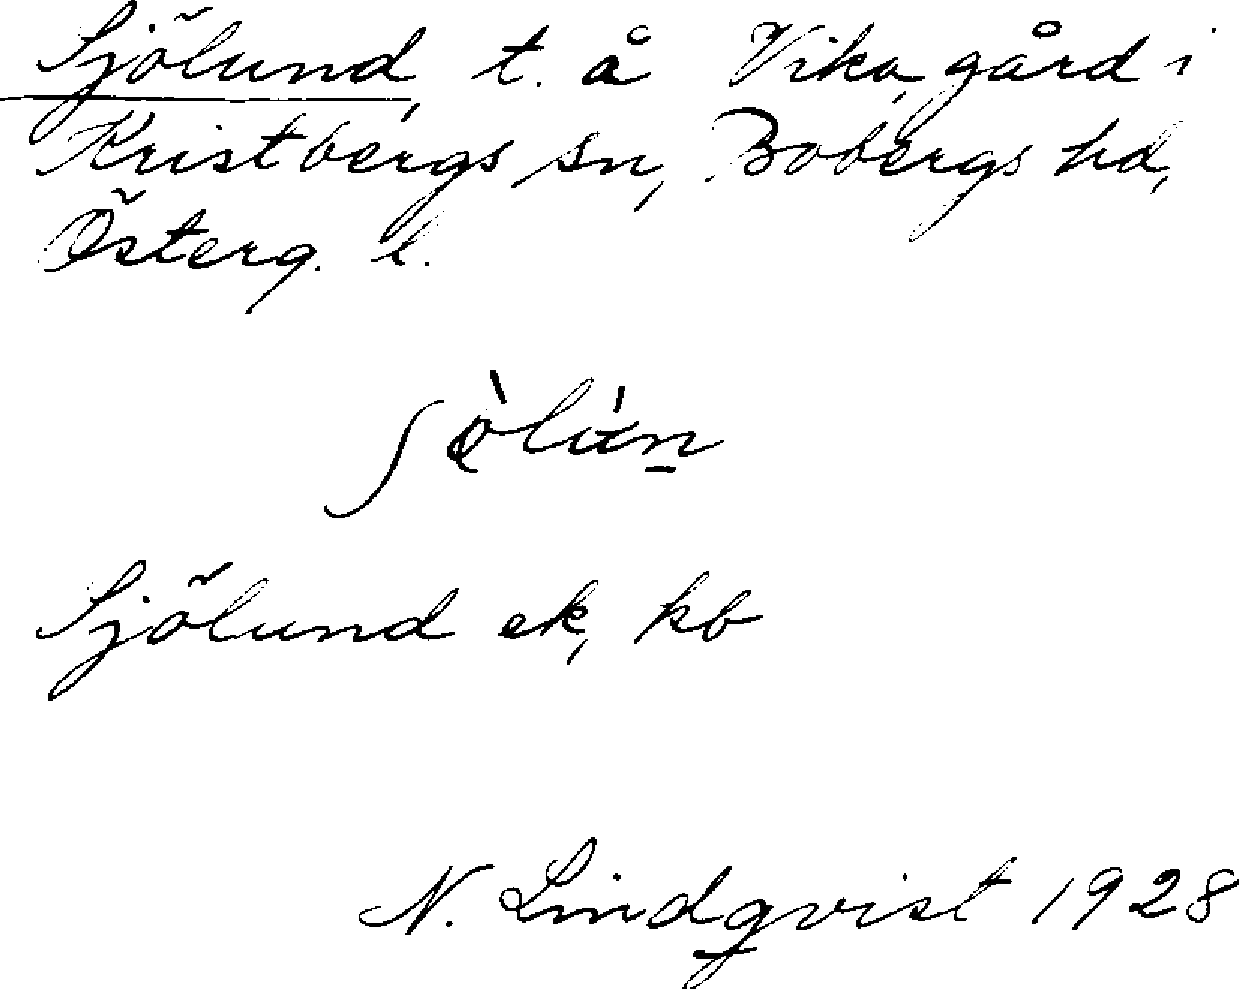 Sjölund, t. å Vika, gård i
Kristbergs sn, Bobergs hd,
Österg. l.
Sjölund ek, kb
N. Lindqvist 1928